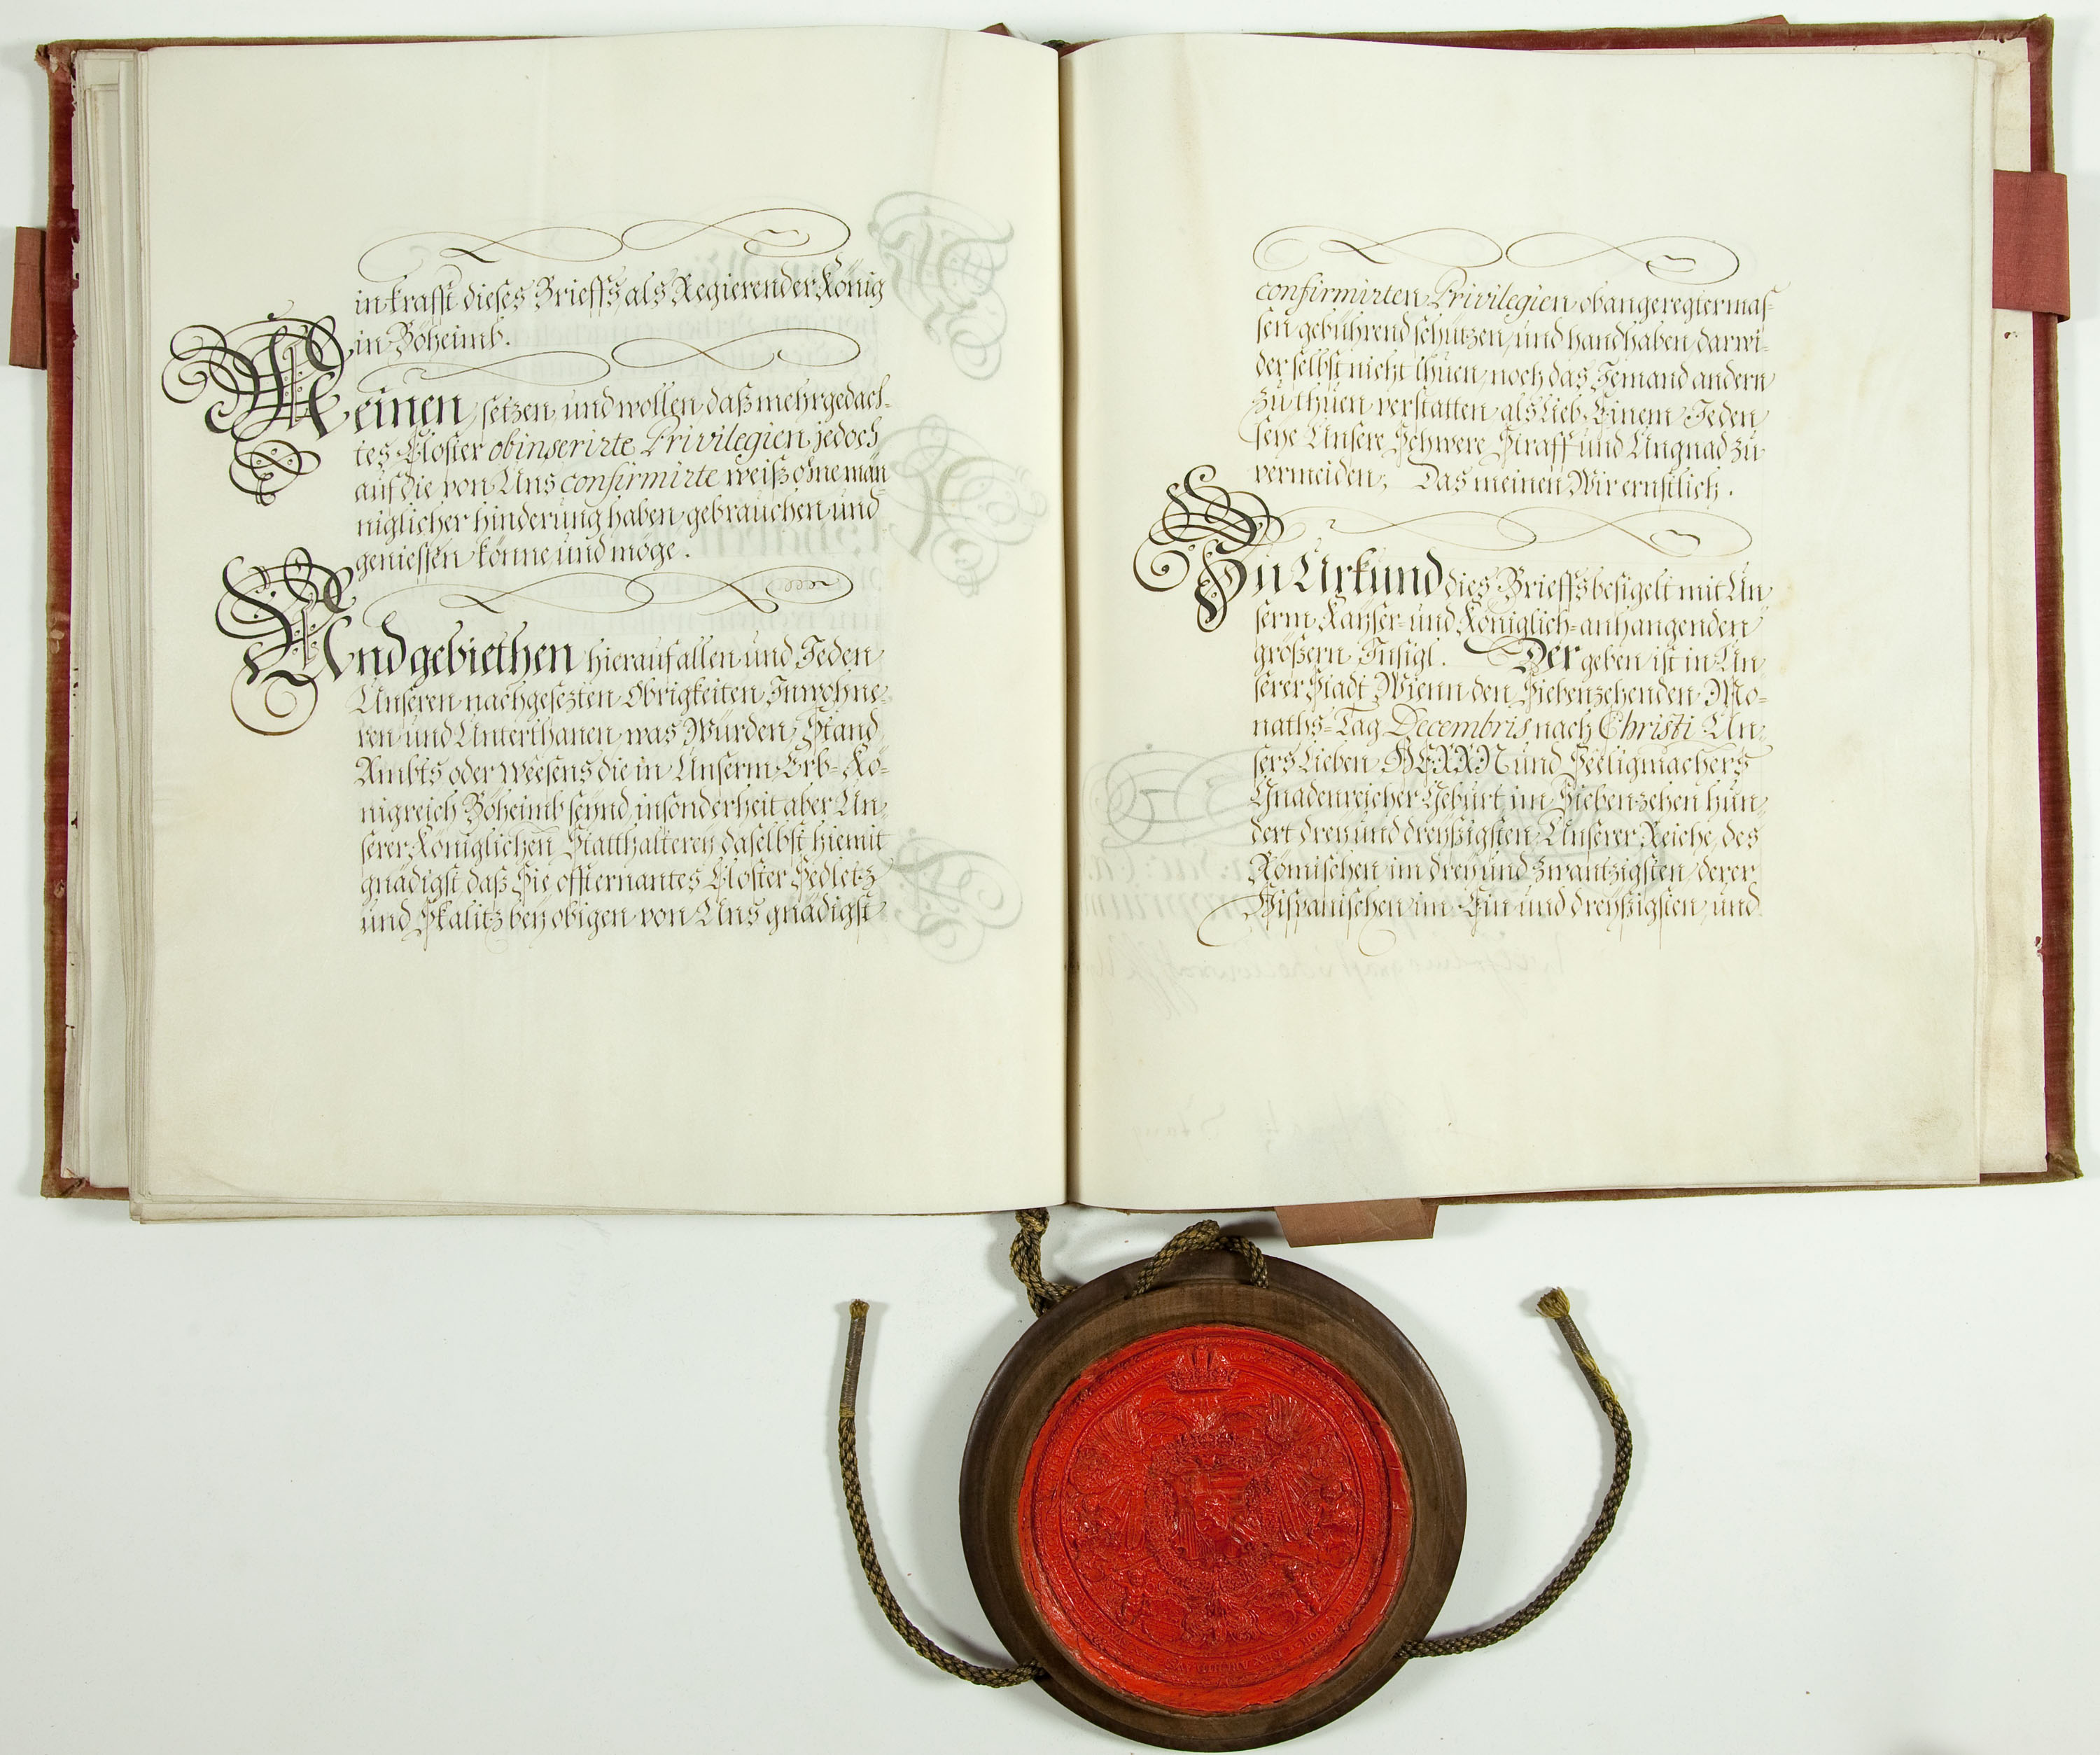 in krafft dieses Brieffs, als Regierender König
in Böheimb.
Meinen, setzen, und wollen, daß mehrgedach-
tes Closter obinserirte Privilegien, jedoch
auf die von Uns confirmirte weiß ohne män-
niglicher hinderung haben, gebrauchen und
geniessen könne, und möge.
Und gebiethen hierauf allen und Jeden
Unseren nachgesezten Obrigkeiten, Inwohne-
ren und Unterthanen, was Würden, Stand,
Ambts oder Weesens die in Unserm Erb-Kö-
nigreich Böheimb seynd, insonderheit aber Un-
serer Königlichen Statthalterey daselbst hiemit
gnädigst, daß Sie offternantes Closter Sedletz
und Skalitz bey obigen von Uns gnädigst
confirmirten Privilegien obangeregtermas-
sen gebührend schützen, und handhaben, darwi-
der selbst nicht thuen, noch das Jemand andern
zu thuen verstatten, als Lieb Einem Jeden
seye Unsere Schwere Straff und Ungnad zu
vermeiden; Das meinen Wir ernstlich.
Zu Urkund dies Brieffs besigelt mit Un-
serm Kayser- und Königlich-anhangenden
größern Insigl. Der geben ist in Un-
serer Stadt Wienn den Siebenzehenden Mo-
naths-Tag Decembris nach Christi Un-
sers Lieben HERRN und Seeligmachers
Gnadenreicher Geburt im Siebenzehen hun-
dert drey und dreyßigsten, Unserer Reiche, des
Römischen im drey und zwantzigsten, derer
Hispanischen im Ein und dreyßigsten, und